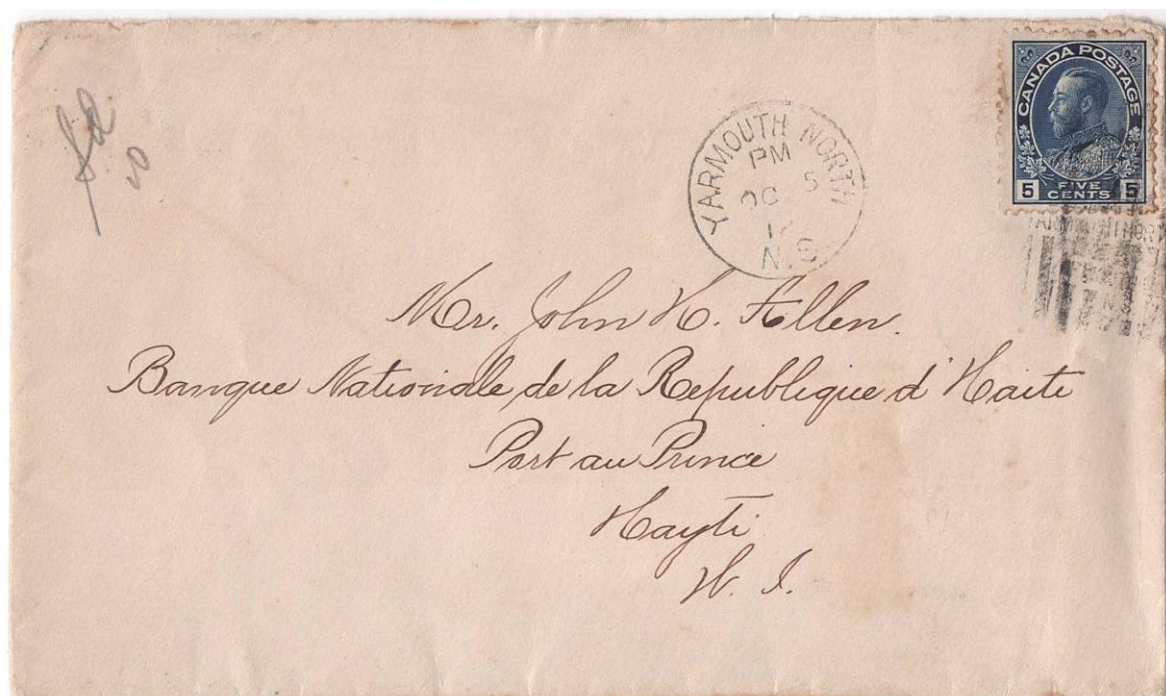 CANADA POSTAGE
5 FIVE CENTS 5
YARMOUTH NORTH
PM
OC 5
12
N.S.
Mr. John H. Allen.
Banque Nationale de la Republique d'Haiti
Port au Prince
Hayti
W. I.